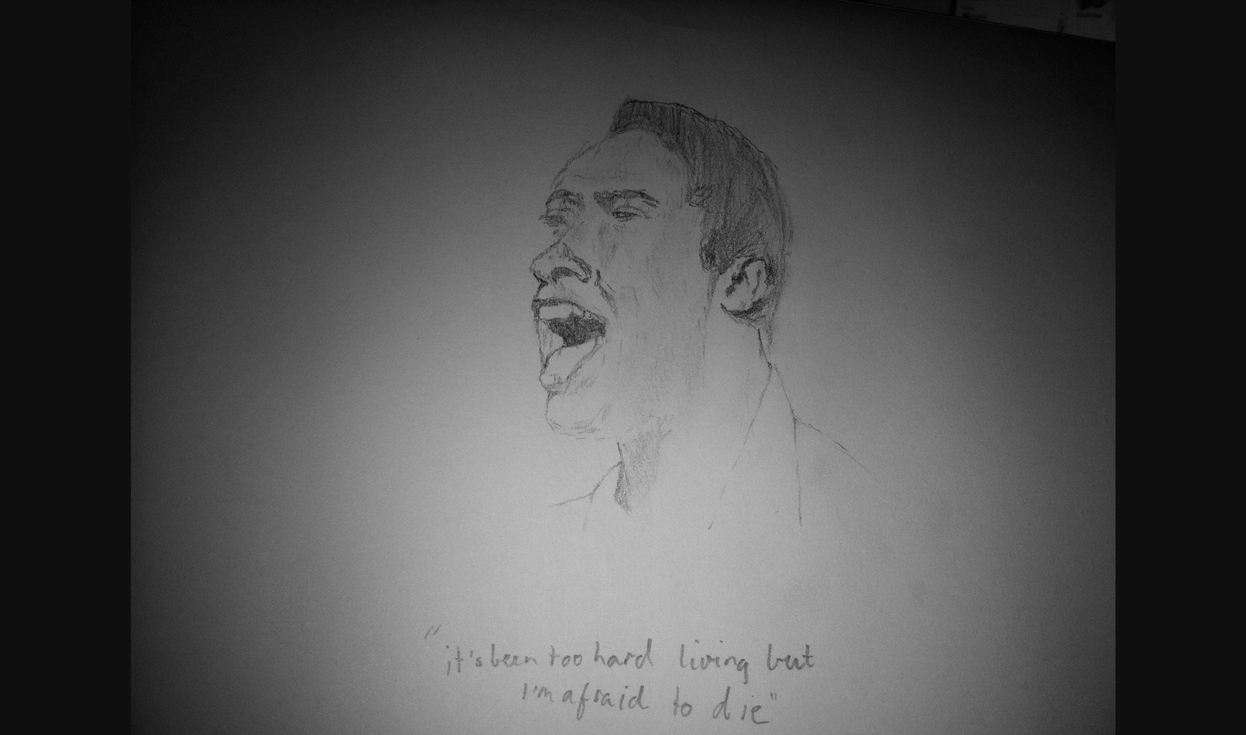 "it's been too hard living but
I'm afraid to die"